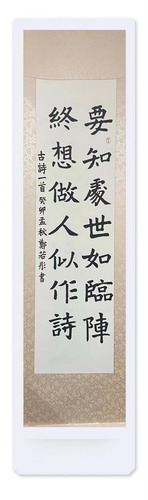 要知處世如臨陣
終想做人似作詩
古詩一首癸卯孟秋鄭若彤書